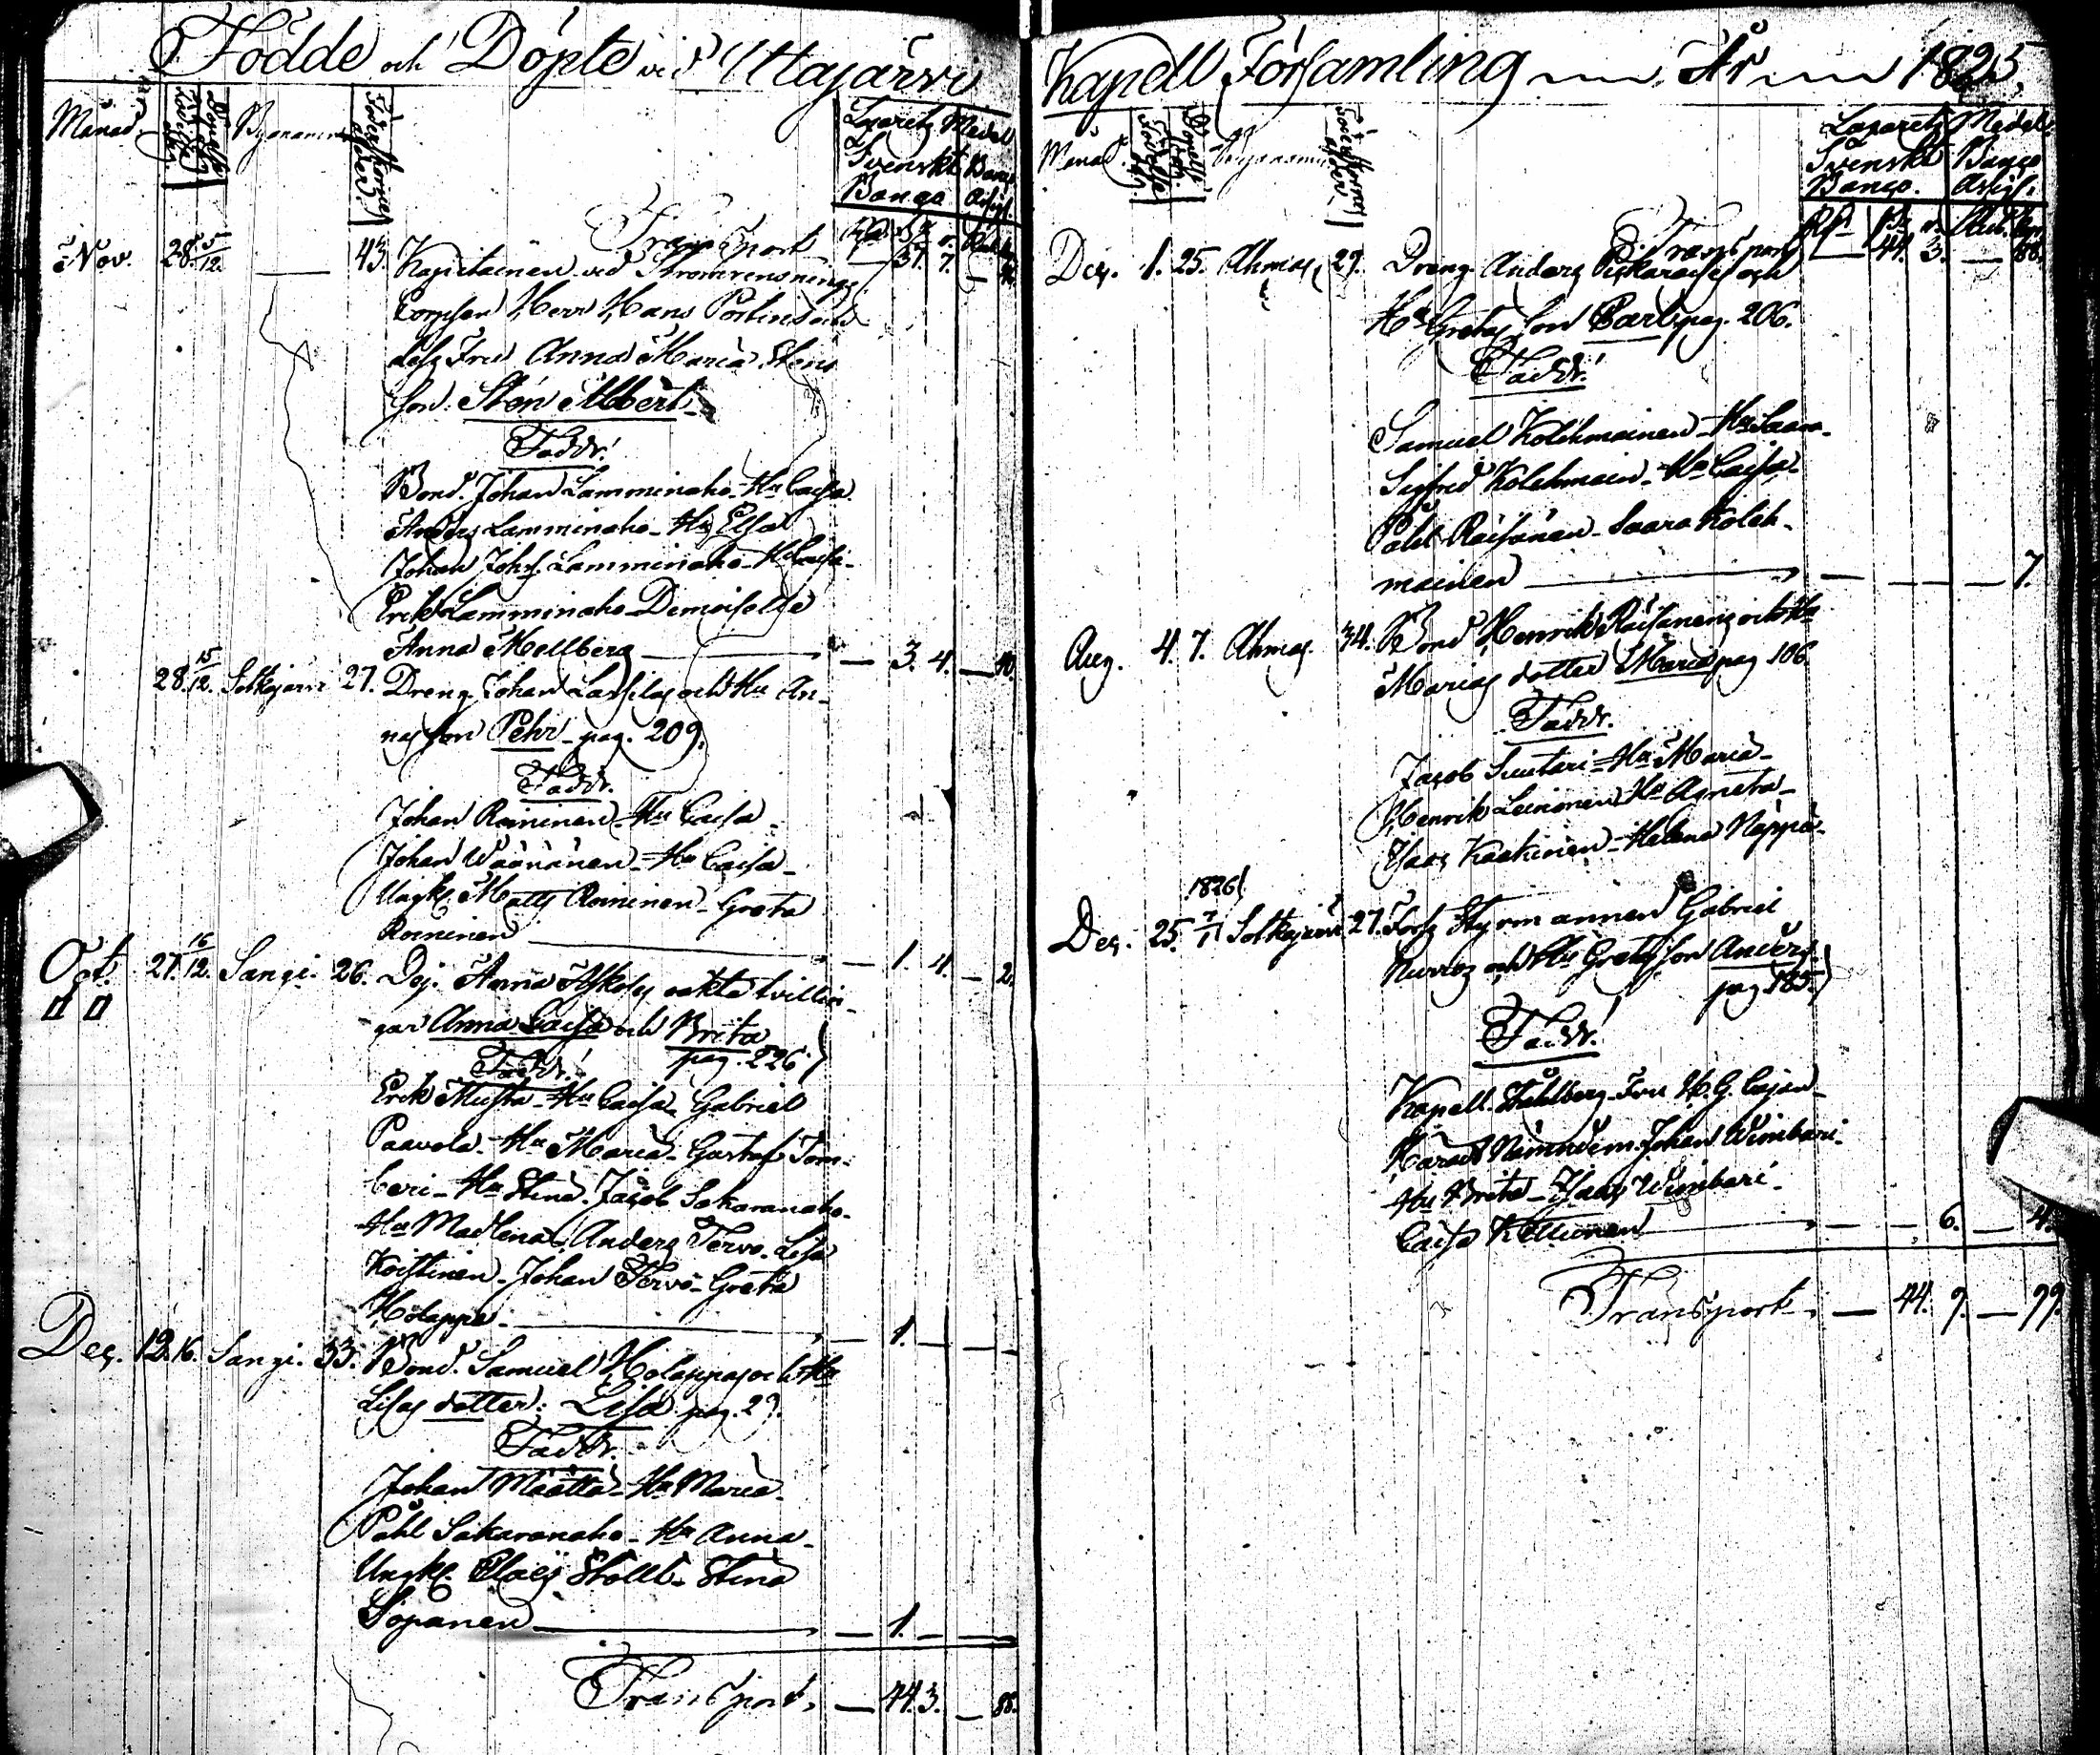 Födde och Döpte vid Utajärvi
Månad
Bynamn
Lazaretz Medel
Svenskt Banco
Banco Assign.
Transport 37. 7.
Nov. 28. 5/12. 43. Kapitainen vid Strömrensnings
Corpsen Herr Hans Portin och
dess Fru Anna Maria Stens
son: Sten Albert
Faddr.
Bond. Johan Lamminaho - Hu Caisa
Anders Lamminaho - Hu Elsa
Johan Johs. Lamminaho - Hu Caisa
Erik Lamminaho Demoiselle
Anna Mellberg — 3. 4. — 10.
28. 15/12. Sotkajärvi 27. Dreng Johan Lassilas och Hu An-
nas son Pehr - pag. 209.
Faddr.
Johan Roininen - Hu Caisa
Johan Wäänänen - Hu Caisa -
Ungk. Matts Roininen - Greta
Roininen — 1. 4. — 2.
Oct. 27. 16/12. Sangi. 26. Dej. Anna oäkta tvillin
gar Anna Caisa och Brita
pag. 226.
Faddr.
Erik Musta - Hu Caisa - Gabriel
Paavola - Hu Maria - Gustaf Tom-
beri - Hu Stina - Jacob Sakaranaho -
Hu Madlena - Anders Tervo - Lisa
Koistinen - Johan Tervo - Greta
Holappa — 1. — —
Dec. 12. 16. Sangi. 33. Bond. Samuel Holappas och Hu
Lisas dotter: Lisa pag. 29.
Faddr.
Johan Määttä - Hu Maria -
Påhl Sakaranaho - Hu Anna -
Ungk. Claes Ståhl - Stina
Sopanen — 1. — —
Transport. — 44. 3. — 88.
Kapell Församling År 1825.
Månad.
Bynamn
Lazaretz Medel
Svenskt Banco
Banco. Assign.
Transport — 44. 3. — 88.
Dec. 1. 25. Ahmas 29. Dreng Anders Piskaraises och
Hu Gretas son Carl pag. 206.
Faddr.
Samuel Kolehmainen - Hu Saara -
Sigfred Kolehmain - Hu Caisa -
Påhl Räisänen - Saara Koleh-
mainen — — — 7.
Aug. 4. 7. Ahmas. 34. Bond Henrik Räisänens och Hu
Marias dotter Maria pag 106.
Faddr.
Jacob Suutari - Hu Maria -
Henrik Leinonen Hu Agneta -
Isaac Kaakinen - Helena Näppä -
1826
Dec. 25. 7/1 Sotkajärvi 27. Fors Styrmannen Gabriel
Nurros och Hu Gretas son Anders
pag 185.
Faddr.
Kapell. Ståhlberg - Fru H. G. Cajan -
Härads Nämndem. Johan Wimbari -
Hu Brita - Isaac Wimbari -
Caisa Kettunen — — 6. — 4.
Transport. — 44. 9. — 99.